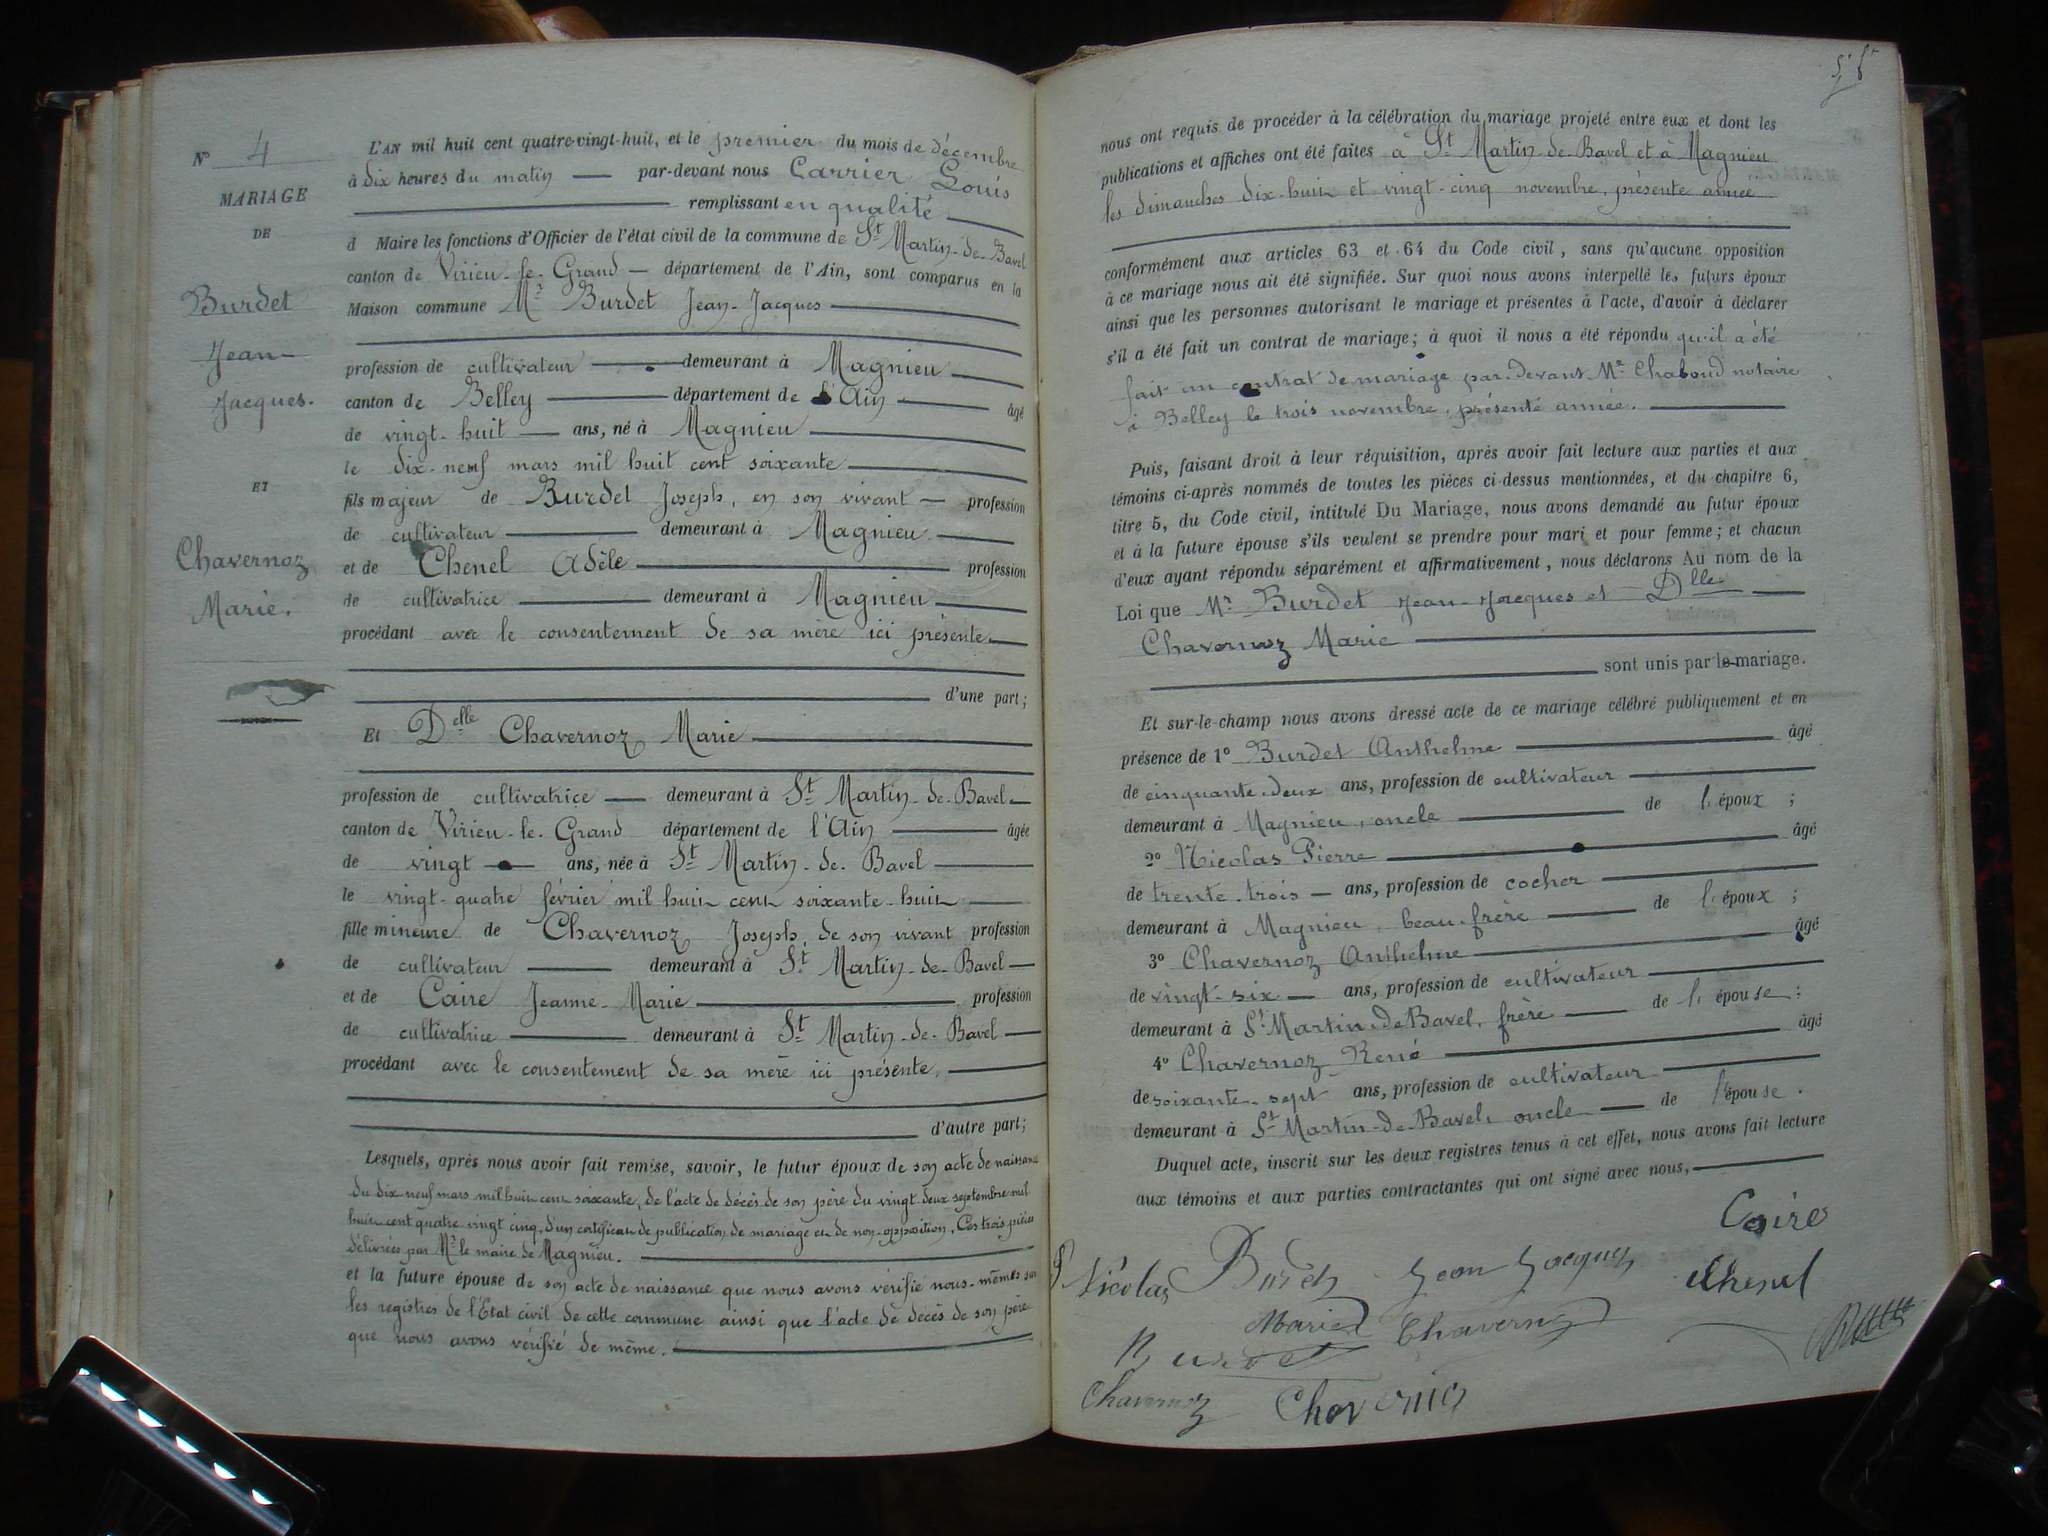 N° 4
MARIAGE
DE
Burdet
Jean-
Jacques.
ET
Chavernoz
Marie.
L'AN mil huit cent quatre-vingt-huit, et le premier du mois de décembre
à dix heures du matin par-devant nous Carrier Louis
remplissant en qualité
d Maire les fonctions d'Officier de l'état civil de la commune de St Martin-de-Bavel
canton de Virieu-le-Grand département de l'Ain, sont comparus en la
Maison commune Mr Burdet Jean-Jacques
profession de cultivateur demeurant à Magnieu
canton de Belley département de l'Ain âgé
de vingt-huit ans, né à Magnieu
le dix-neuf mars mil huit cent soixante
fils majeur de Burdet Joseph, en son vivant profession
de cultivateur demeurant à Magnieu
et de Chenel Adèle profession
de cultivatrice demeurant à Magnieu
procédant avec le consentement de sa mère ici présente
d'une part;
Et Delle Chavernoz Marie
profession de cultivatrice demeurant à St Martin-de-Bavel
canton de Virieu-le-Grand département de l'Ain âgée
de vingt ans, née à St Martin-de-Bavel
le vingt-quatre février mil huit cent soixante-huit
fille mineure de Chavernoz Joseph, de son vivant profession
de cultivateur demeurant à St Martin-de-Bavel
et de Caire Jeanne-Marie profession
de cultivatrice demeurant à St Martin-de-Bavel
procédant avec le consentement de sa mère ici présente,
d'autre part;
Lesquels, après nous avoir fait remise, savoir, le futur époux de son acte de naissance
du dix neuf mars mil huit cent soixante, de l'acte de décès de son père du vingt-deux septembre mil
huit cent quatre vingt cinq, d'un certificat de publication de mariage et de non-opposition, Ces trois pièces
délivrées par Mr le maire de Magnieu.
et la future épouse de son acte de naissance que nous avons vérifié nous-mêmes sur
les registres de l'Etat civil de cette commune ainsi que l'acte de décès de son père
que nous avons vérifié de même.
nous ont requis de procéder à la célébration du mariage projeté entre eux et dont les
publications et affiches ont été faites à St Martin-de-Bavel et à Magnieu
les dimanches dix-huit et vingt-cinq novembre, présente année
conformément aux articles 63 et 64 du Code civil, sans qu'aucune opposition
à ce mariage nous ait été signifiée. Sur quoi nous avons interpellé les futurs époux
ainsi que les personnes autorisant le mariage et présentes à l'acte, d'avoir à déclarer
s'il a été fait un contrat de mariage; à quoi il nous a été répondu qu'il a été
fait un contrat de mariage par-devant Me Chaboud notaire
à Belley le trois novembre, présente année.
Puis, faisant droit à leur réquisition, après avoir fait lecture aux parties et aux
témoins ci-après nommés de toutes les pièces ci-dessus mentionnées, et du chapitre 6,
titre 5, du Code civil, intitulé Du Mariage, nous avons demandé au futur époux
et à la future épouse s'ils veulent se prendre pour mari et pour femme; et chacun
d'eux ayant répondu séparément et affirmativement, nous déclarons Au nom de la
Loi que Mr Burdet Jean-Jacques et Dlle
Chavernoz Marie
sont unis par le mariage.
Et sur-le-champ nous avons dressé acte de ce mariage célébré publiquement et en
présence de 1° Burdet Anthelme âgé
de cinquante-deux ans, profession de cultivateur
demeurant à Magnieu, oncle de l'époux;
2° Nicolas Pierre âgé
de trente-trois ans, profession de cocher
demeurant à Magnieu, beau-frère de l'époux;
3° Chavernoz Anthelme âgé
de vingt-six ans, profession de cultivateur
demeurant à St Martin-de-Bavel, frère de l'épouse;
4° Chavernoz René âgé
de soixante-sept ans, profession de cultivateur
demeurant à St Martin-de-Bavel, oncle de l'épouse.
Duquel acte, inscrit sur les deux registres tenus à cet effet, nous avons fait lecture
aux témoins et aux parties contractantes qui ont signé avec nous,
Caire
P Nicolas Burdet Jean Jacques Chenel
Marie Chavernoz
Burdet
Chavernoz Chavernoz